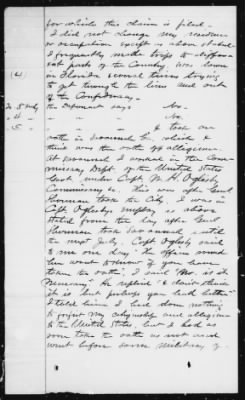 for which this claim is filed.
I did not change my residence
or occupation except as above stated.
I frequently made trips to different
parts of the Country, was down
(4) in Florida several times trying
to get through the lines and out
of the Confederacy.
To 3d Inty Deponent says No.
" 4 " " No.
" 5 " " I took an
oath in Savannah Ga which I
think was the oath of allegiance.
At Savannah I worked in the Com-
missary Dept of the United States
Govt under Capt Oglesby
Commissary &c. this was after Genl
Sherman took the City. I was in
Capt Oglesbys employ as above
stated from the day after Genl
Sherman took Savannah until
the next July. Capt Oglesby said
to me one day
him want to know if you have
taken the oath", I said "No. is it
necessary" He replied "I dont think
it is but perhaps you had better"
I told him I had done nothing
to forfeit my allegiance
to the United States, but I had as
soon take the oath as not and
went before some military